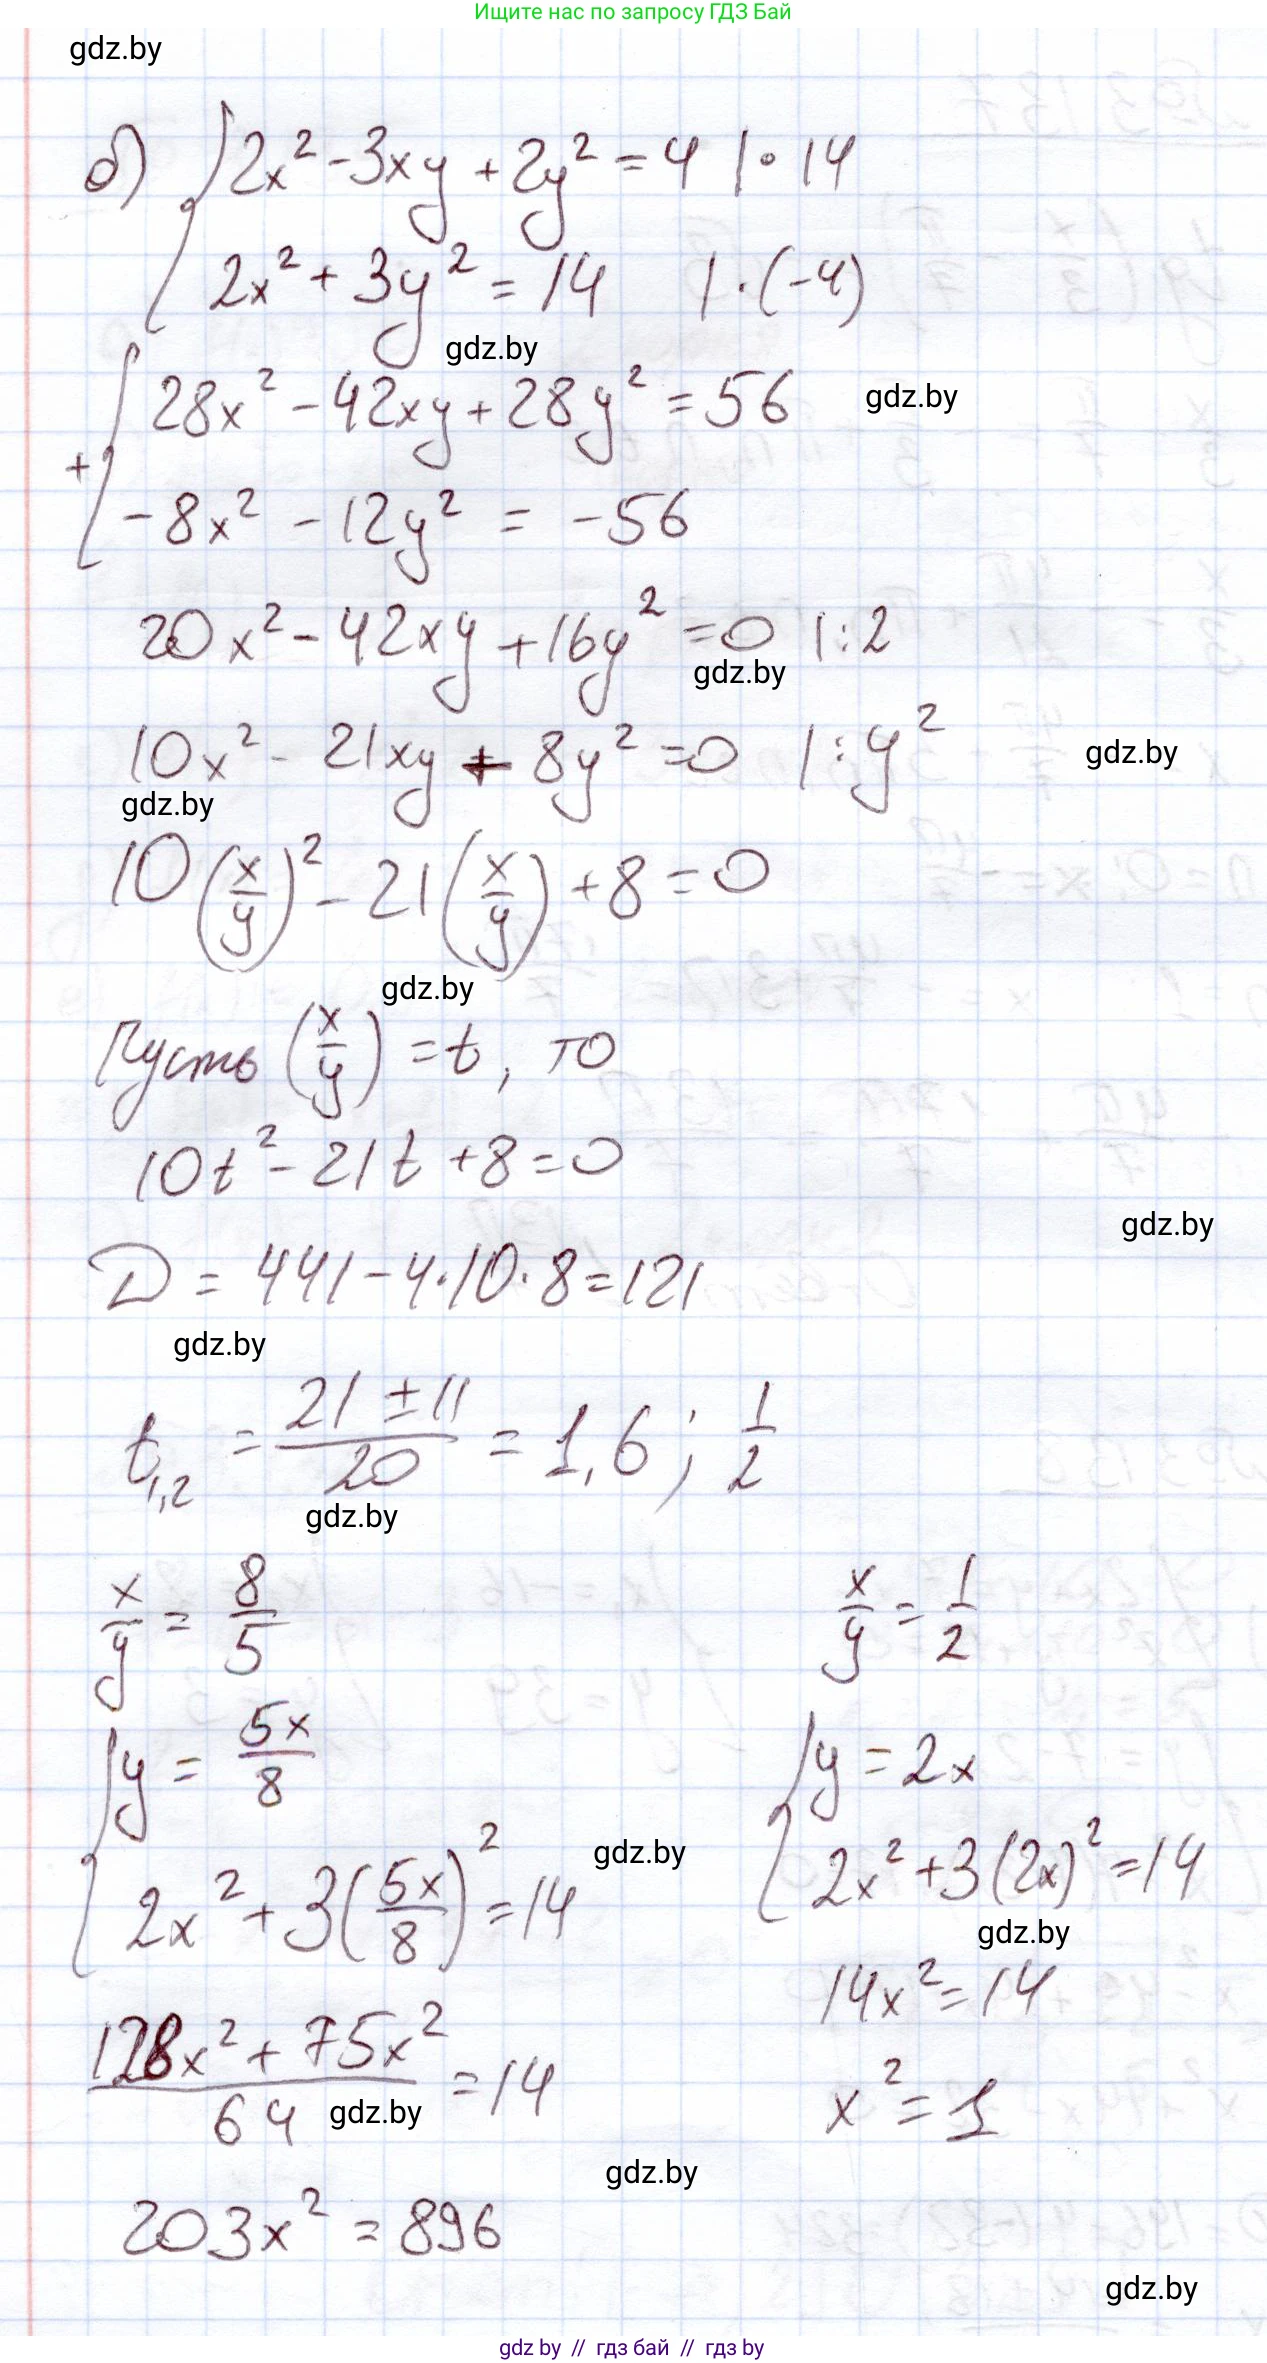 Ищите нас по запросу ГДЗ Бай
gdz.by
б) { 2x² - 3xy + 2y² = 4 | · 14
2x² + 3y² = 14 | · (-4)
gdz.by
+ { 28x² - 42xy + 28y² = 56
gdz.by
-8x² - 12y² = -56
20x² - 42xy + 16y² = 0 | : 2
gdz.by
10x² - 21xy + 8y² = 0 | : y²
gdz.by
gdz.by
10(x/y)² - 21(x/y) + 8 = 0
gdz.by
Пусть (x/y) = t, то
10t² - 21t + 8 = 0
gdz.by
D = 441 - 4·10·8 = 121
gdz.by
t₁,₂ = (21 ± 11)/20 = 1,6; 1/2
gdz.by
x/y = 8/5 x/y = 1/2
{ y = 5x/8 { y = 2x
gdz.by
2x² + 3(5x/8)² = 14 2x² + 3(2x)² = 14
gdz.by
14x² = 14
(128x² + 75x²)/64 = 14 x² = 1
gdz.by
gdz.by
203x² = 896
gdz.by
gdz by // гдз бай // гдз by